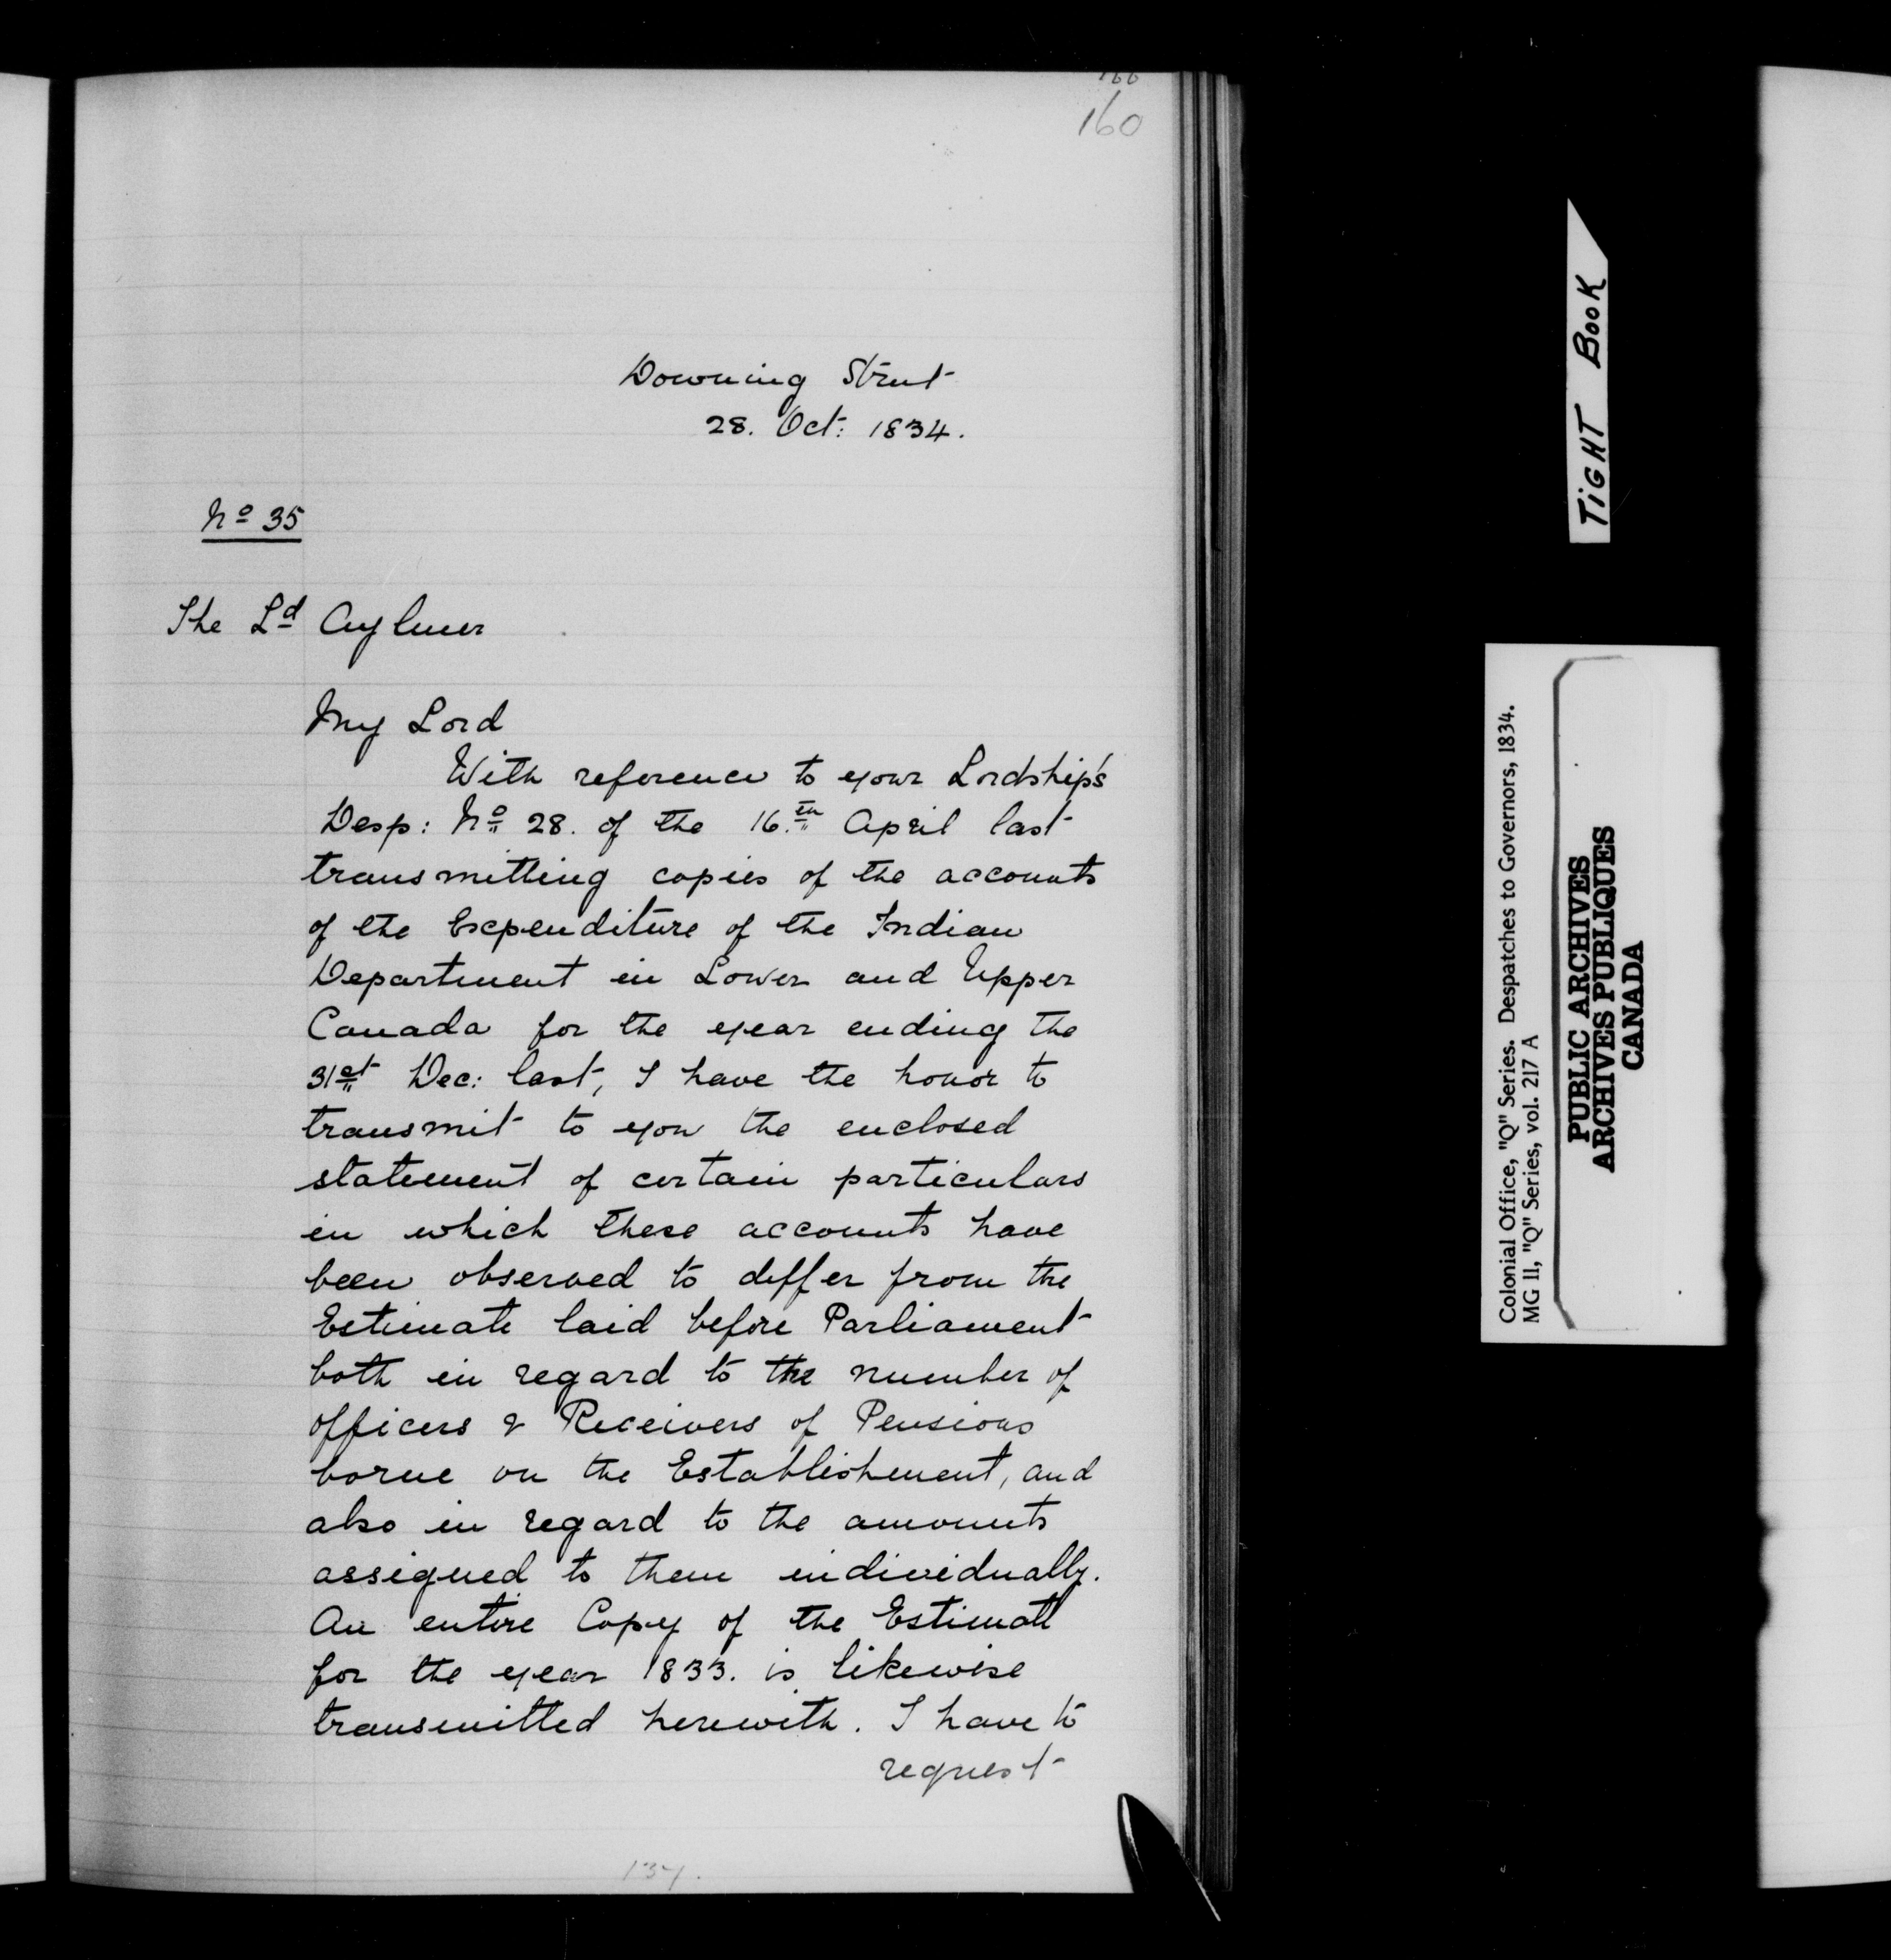 160
Downing Street
28. Oct: 1834.
No 35
The Ld Aylmer
My Lord
With reference to your Lordship's
Desp: No 28. of the 16.th April last
transmitting copies of the accounts
of the Expenditure of the Indian
Department in Lower and Upper
Canada for the year ending the
31st Dec: last, I have the honor to
transmit to you the enclosed
statement of certain particulars
in which these accounts have
been observed to differ from the
Estimate laid before Parliament
both in regard to the number of
officers & Receivers of Pensions
borne on the Establishment, and
also in regard to the amounts
assigned to them individually.
An entire Copy of the Estimate
for the year 1833. is likewise
transmitted herewith. I have to
request
TIGHT BOOK
Colonial Office, "Q" Series. Despatches to Governors, 1834.
MG 11, "Q" Series, vol. 217 A
PUBLIC ARCHIVES
ARCHIVES PUBLIQUES
CANADA